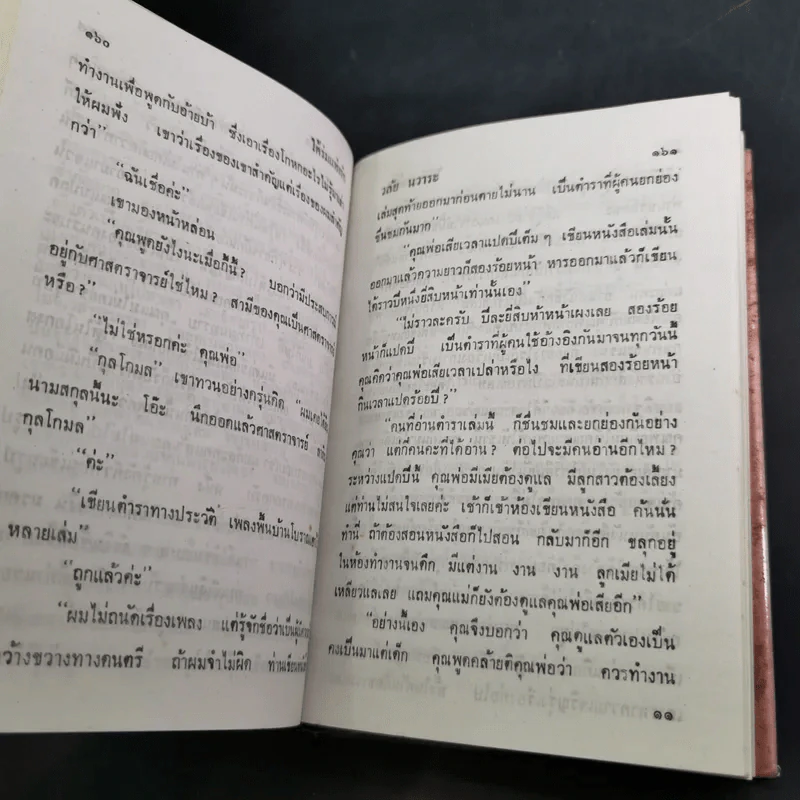 ๑๖๐
ทำงานเพื่อพูดกับอ้ายบ้า ซึ่งเอาเรื่องโกหกอะไรไม่รู้
ให้ผมฟัง เขาว่าเรื่องของเขาสำคัญแต่เรื่องของ
กว่า”
“ฉันเชื่อค่ะ”
เขามองหน้าหล่อน
“คุณพูดยังไงนะเมื่อกี้นี้? บอกว่ามี
อยู่กับศาสตราจารย์ใช่ไหม? สามีของคุณเป็นศาสตราจารย์
หรือ?”
“ไม่ใช่หรอกค่ะ คุณพ่อ”
“กุลโกมล” เขาทวนอย่างครุ่นคิด
นามสกุลนี้นะ โอ๊ะ นึกออกแล้วศาสตราจารย์
กุลโกมล”
“ค่ะ”
“เขียนตำราทางประวัติ เพลงพื้นบ้านโบราณ
หลายเล่ม”
“ถูกแล้วค่ะ”
“ผมไม่ถนัดเรื่องเพลง แต่รู้จักชื่อว่าเป็น
ว้างขวางทางดนตรี ถ้าผมจำไม่ผิด ท่านเขียน
วลัย นวาระ
๑๖๑
เล่มสุดท้ายออกมาก่อนตายไม่นาน เป็นตำราที่ผู้คนยกย่อง
ชื่นชมกันมาก”
“คุณพ่อเสียเวลาแปดปีเต็มๆ เขียนหนังสือเล่มนั้น
ออกมาแล้วความยาวก็สองร้อยหน้า หารออกมาแล้วก็เขียน
ได้ราวปีหนึ่งยี่สิบหน้าเท่านั้นเอง”
“ไม่ราวละครับ ปีละยี่สิบห้าหน้าเผงเลย สองร้อย
หน้าก็แปดปี เป็นตำราที่ผู้คนใช้อ้างอิงกันมาจนทุกวันนี้
คุณคิดว่าคุณพ่อเสียเวลาเปล่าหรือไง ที่เขียนสองร้อยหน้า
กินเวลาแปดร้อยปี?”
“คนที่อ่านตำราเล่มนี้ ก็ชื่นชมและยกย่องกันอย่าง
คุณว่า แต่กี่คนคะที่ได้อ่าน? ต่อไปจะมีคนอ่านอีกไหม?
ระหว่างแปดปีนี้ คุณพ่อมีเมียต้องดูแล มีลูกสาวต้องเลี้ยง
แต่ท่านไม่สนใจเลยค่ะ เช้าก็เข้าห้องเขียนหนังสือ ค้นนั่น
ทำนี่ ถ้าต้องสอนหนังสือก็ไปสอน กลับมาก็อีก ขลุกอยู่
ในห้องทำงานจนดึก มีแต่งาน งาน งาน ลูกเมียไม่ได้
เหลียวแลเลย แถมคุณแม่ก็ยังต้องดูแลคุณพ่อเสียอีก”
“อย่างนี้เอง คุณจึงบอกว่า คุณดูแลตัวเองเป็น
คงเป็นมาแต่เด็ก คุณพูดคล้ายติคุณพ่อว่า ควรทำงาน
๑๑